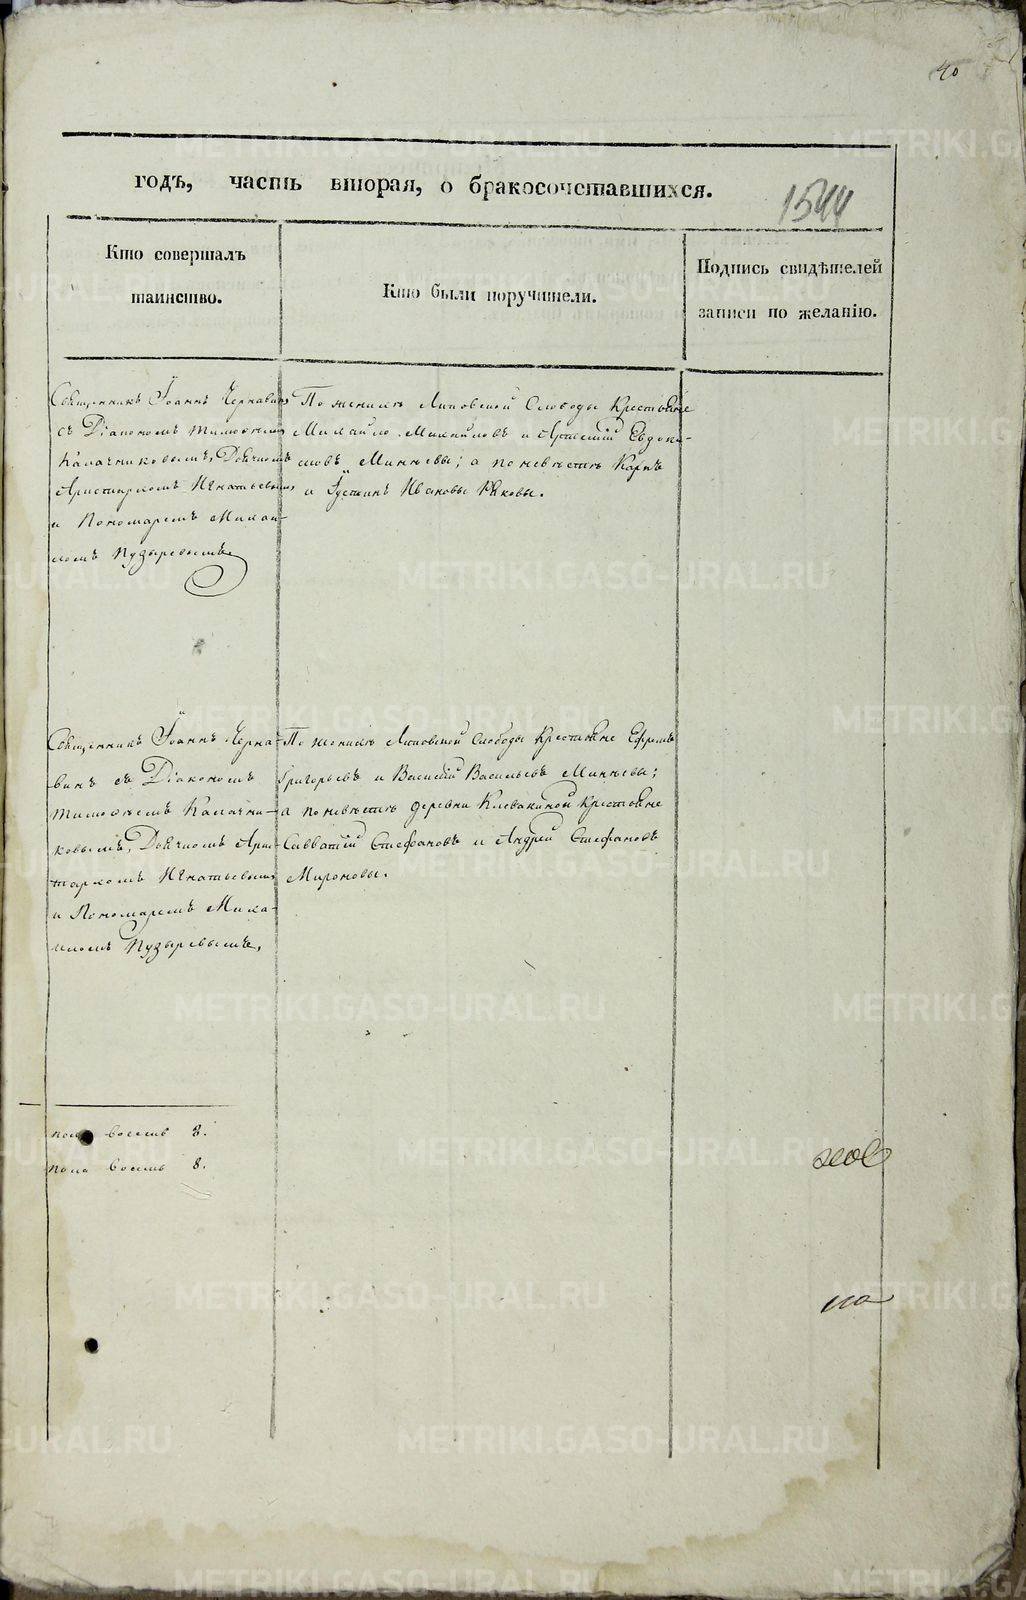 40
годъ, часть вторая, о бракосочетавшихся.
1544
Кто совершалъ
таинство.
Кто были поручители.
Подпись свидѣтелей
записи по желанію.
Священникъ Іоаннъ Чернавинъ
съ Діакономъ Тимофеемъ
Калачниковымъ, Дьячкомъ
Аристархомъ Игнатьевымъ
и Пономаремъ Михаи-
ломъ Пузыревымъ
По женихѣ Липовской Слободы Крестьяне
Михайло Михайловъ и Арсений Евдоки-
мовъ Минѣевы; а по невѣстѣ Карпъ
и Іустинъ Ивановы
Священникъ Іоаннъ Черна-
винъ съ Діакономъ
Тимофеемъ Калачни-
ковымъ, Дьячкомъ Арис-
тархомъ Игнатьевымъ
и Пономаремъ Миха-
иломъ Пузыревымъ.
По женихѣ Липовской Слободы Крестьяне Ефремъ
Григорьевъ и Василій Васильевъ Минѣевы;
а по невѣстѣ деревни Клевакиной Крестьяне
Савватій Стефановъ и Андрей Стефановъ
Мироновы.
пола восемь 8.
пола восемь 8.
METRIKI.GASO-URAL.RU